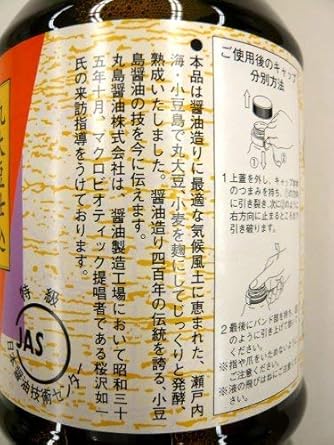 本品は醤油造りに最適な気候風土に恵まれた、瀬戸内
海・小豆島で丸大豆、小麦を麹にしてじっくりと発酵
熟成いたしました。醤油造り四百年の伝統を誇る、小豆
島醤油の技を今に伝えます。
丸島醤油株式会社は、醤油製造工場において昭和三十
五年十月、マクロビオティック提唱者である桜沢如一
氏の来訪指導をうけております。
ご使用後のキャップ
分別方法
1 上蓋を外し、キャップ
のつまみを持ち、①の
に引き裂き、次に②のように
右方向に止まるところまで
引き破ります。
2 最後にバンド部を持ち、
のように引き上げて
ください。
※指や爪をいためないように
ご注意ください。
※液の飛びはねにご注意
ください。
特級
JAS
日本醤油技術センター